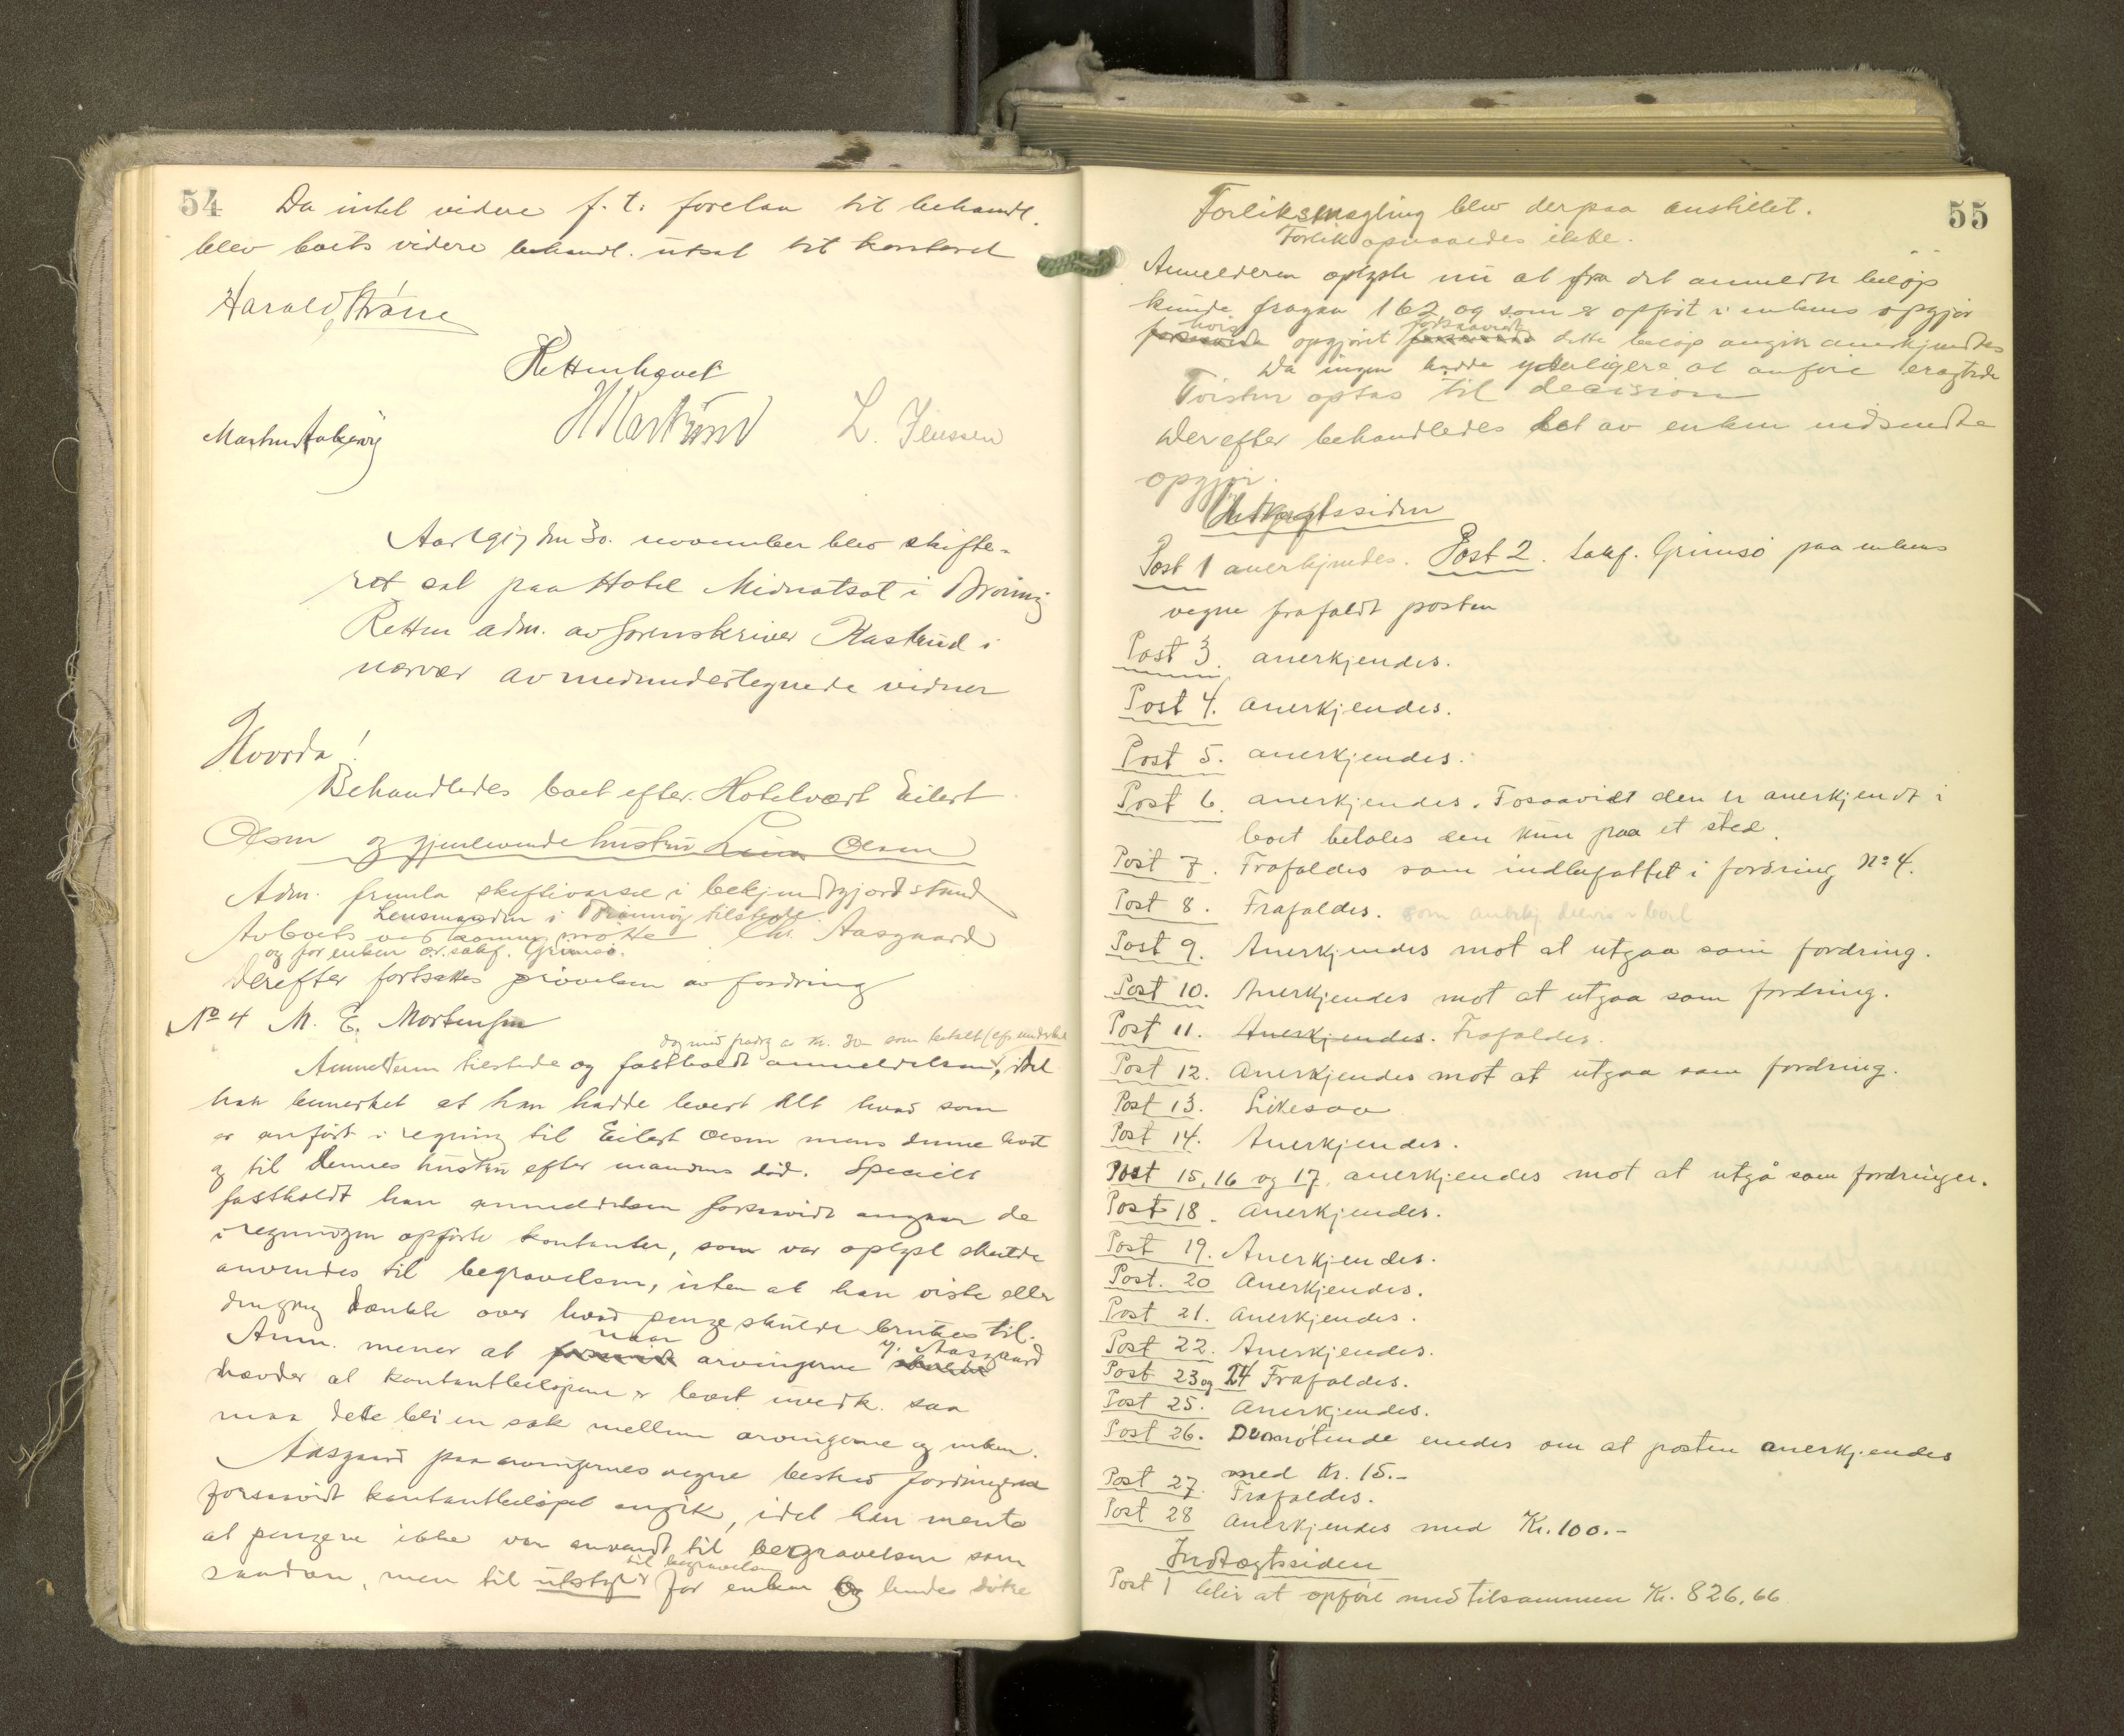 54
Da intet videre f. t. forelaa til behandl.
blev boets videre behandl. utsat til
Harald
Retten hævet
H Kastrud L. Jenssen
Aar 1917 den 30. november blev skifte-
ret sat paa Hotel Midnatsol i Brønnø
Retten adm. av sorenskriver Kastrud i
nærvær av medundertegnede vidner
Hvorda!
Behandledes boet efter Hotelvært Eilert
Olsen og gjenlevende hustru Lina Olsen
Adm. fremla i bekjendtgjort stand
Lensmanden i Brønnø tilstede.
Av boets møtte Chr. Aasgaard
og for enken o.r.sakf. Grimsø.
Derefter fortsattes prøvelsen av fordring
No 4 M. E. Mortensen
dog med fradrag av Kr. 30 som betalt
Anmelderen tilstede og fastholdt anmeldelsen, idet
han bemerket at han hadde levert alt hvad som
er anført i regning til Eilert Olsen mens denne levet
og til dennes hustru efter mandens død. Specielt
fastholdt han anmeldelsen forsaavidt angaar de
i regningen opførte kontanter, som var oplyst skulde
anvendes til begravelsen, uten at han viste eller
tænkte over hvad penge skulde brukes til.
naar v. Aasgaard
Anm. mener at forsaavidt arvingerne
hævder at kontantbeløpene er boet uvedk. saa
maa dette bli en sak mellem arvingerne og enken.
Aasgaard paa arvingernes vegne bestred fordringen
forsaavidt kontantbeløpet angik, idet han mente
at pengene ikke var anvendt til begravelsen som
til begravelsen
saadan, men til utstyr for enken og hendes døtre
55
Forliksmægling blev derpaa anstillet.
Forlik opnaaedes ikke.
Anmelderen oplyste nu at fra det anmeldte beløp
kunde fragaa 162 og som er opført i enkens opgjør
hvis forsaavidt
forsaavidt opgjøret forsaavidt dette beløp angik anerkjendtes
Da ingen hadde yderligere at anføre
Tvisten optas til decision
Derefter behandledes det av enken indsendte
opgjør.
Utgiftssiden
Post 1 anerkjendes. Post 2. Sakf. Grimsø paa enkens
vegne frafaldt posten
Post 3. anerkjendes.
Post 4. anerkjendes.
Post 5. anerkjendes.
Post 6. anerkjendes. Fosaavidt den er anerkjendt i
boet betales den kun paa et sted.
Post 7. Frafaldes som indbefattet i fordring No 4.
Post 8. Frafaldes. som anerkj.
Post 9. Anerkjendes mot at utgaa som fordring.
Post 10. Anerkjendes mot at utgaa som fordring.
Post 11. Anerkjendes. Frafaldes.
Post 12. Anerkjendes mot at utgaa som fordring.
Post 13. Likesaa
Post 14. Anerkjendes.
Post 15, 16 og 17, anerkjendes mot at utgå som fordringer.
Post 18. Anerkjendes.
Post 19. Anerkjendes.
Post. 20 Anerkjendes.
Post 21. Anerkjendes.
Post 22. Anerkjendes.
Post 23 og 24 Frafaldes.
Post 25. Anerkjendes.
Post 26. De møtende enedes om at posten anerkjendes
med Kr. 15.-
Post 27. Frafaldes.
Post 28 Anerkjendes med Kr. 100.-
Indtægtssiden
Post 1 blir at opføre med tilsammen Kr. 826,66